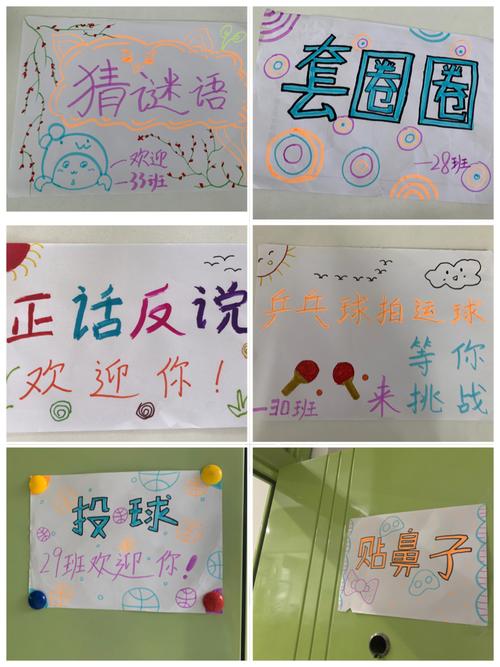 猜谜语
欢迎
33班
套圈圈
28班
正话反说
欢迎你！
乒乓球拍运球
等你
30班
来挑战
投球
29班欢迎你！
贴鼻子